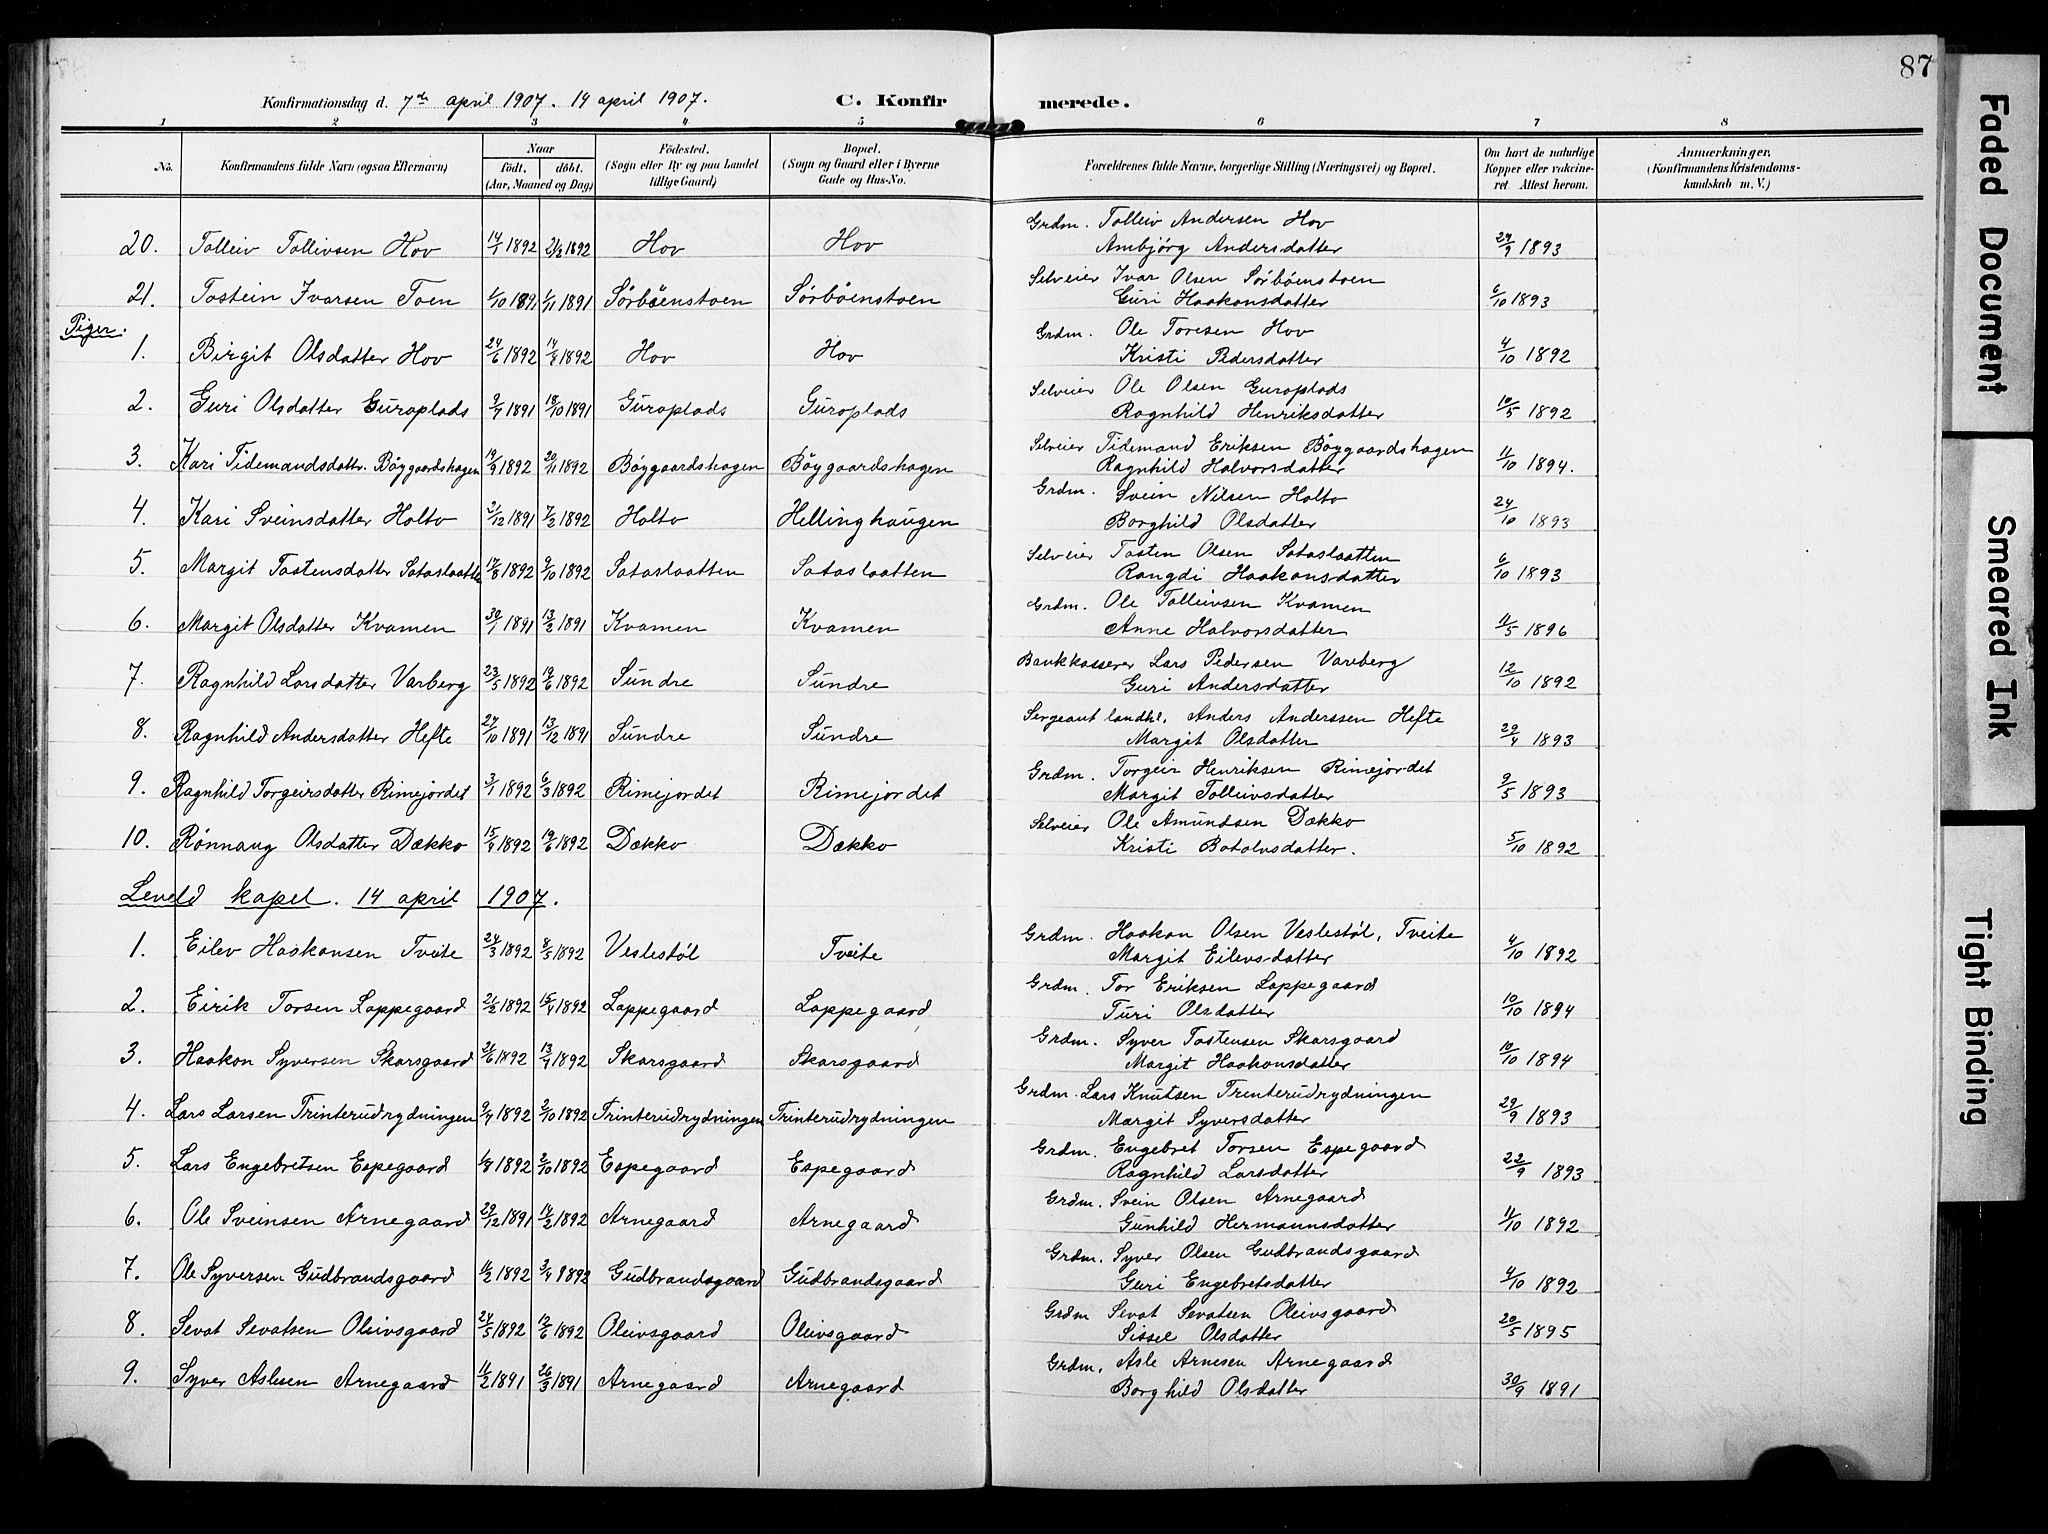 87
Konfirmationsdag d. 7de april 1907. 14 april 1907. C. Konfirmerede.
1 2 3 4 5 6 7 8
No. Konfirmandens fulde Navn (ogsaa Efternavn) Naar født. døbt. (Aar, Maaned og Dag) Fødested. (Sogn eller By og paa Landet tillige Gaard) Bopæl. (Sogn og Gaard eller i Byerne Gade og Hus-No. Forældrenes fulde Navne, borgerlige Stilling (Næringsvei) og Bopæl. Om havt de naturlige Kopper eller vakcineret. Attest herom. Anmærkninger. (Konfirmandens Kristendomskundskab m. V.)
20. Tolleiv Tollivsen Hov 14/1 1892 21/2 1892 Hov Hov Grdm. Tolleiv Andersen Hov
Ambjörg Andersdatter 24/9 1893
21. Tostein Ivarsen Toen 1/10 1891 1/11 1891 Sørbøenstoen Sørbøenstoen Selveier Ivar Olsen Sørbøenstoen
Guri Haakonsdatter 6/10 1893
Piger.
1. Birgit Olsdatter Hov 24/6 1892 14/8 1892 Hov Hov Grdm. Ole Toresen Hov
Kristi Pedersdatter 4/10 1892
2. Guri Olsdatter Guroplads 9/9 1891 18/10 1891 Guroplads Guroplads Selveier Ole Olsen Guroplads
Ragnhild Henriksdatter 10/5 1892
3. Kari Tidemandsdattr. Bøygaardshagen 19/9 1892 20/11 1892 Bøygaardshagen Bøygaardshagen Selveier Tidemand Eriksen Bøygaardshagen
Ragnhild Halvorsdatter 11/10 1894.
4. Kari Sveinsdatter Holto 2/12 1891 7/2 1892 Holto Hellinghaugen Grdm. Svein Nilsen Holto
Borghild Olsdatter 24/10 1893
5. Margit Tostensdatter Sataslaatten 17/8 1892 9/10 1892 Sataslaatten Sataslaatten Selveier Tosten Olsen Sataslaatten
Rangdi Haakonsdatter 6/10 1893
6. Margit Olsdatter Kvamen 30/1 1891 13/3 1891 Kvamen Kvamen Grdm. Ole Tolleivsen Kvamen
Anne Halvorsdatter 11/5 1896
7. Ragnhild Larsdatter Varberg 23/5 1892 19/6 1892 Sundre Sundre Bankkasserer Lars Pedersen Vareberg
Guri Andersdatter 12/10 1892
8. Ragnhild Andersdatter Hefte 27/10 1891 13/12 1891 Sundre Sundre Sergeant landhl. Anders Anderssen Hefte
Margit Olsdatter 29/4 1893
9. Ragnhild Torgeirsdatter Rimejordet 3/1 1892 6/3 1892 Rimejordet Rimejordet Grdm. Torgeir Henriksen Rimejordet
Margit Tolleivsdatter 9/5 1893
10. Rønnaug Olsdatter Dækko 15/4 1892 19/6 1892 Dækko Dækko Selveier Ole Amundsen Dækko
Kristi Botolvsdatter. 5/10 1892
Leveld kapel. 14 april 1907.
1. Eilev Haakonsen Tveite 24/3 1892 8/5 1892 Veslestøl Tveite Grdm. Haakon Olsen Veslestøl, Tveite
Margit Eilevsdatter 4/10 1892
2. Eirik Torsen Loppegaard 21/2 1892 15/4 1892 Loppegaard Loppegaard Grdm. Tor Eriksen Loppegaard
Turi Olsdatter 10/10 1894
3. Haakon Syversen Skarsgaard 21/6 1892 13/9 1892 Skarsgaard Skarsgaard Grdm. Syver Tostensen Skarsgaard
Margit Haakonsdatter 10/10 1894
4. Lars Larsen Trinterudrydningen 9/7 1892 2/10 1892 Trinterudrydningen Trinterudrydningen Grdm. Lars Knutsen Trinterudrydningen
Margit Syversdatter 29/9 1893
5. Lars Engebretsen Espegaard 1/8 1892 2/10 1892 Espegaard Espegaard Grdm. Engebret Torsen Espegaard
Ragnhild Larsdatter 22/9 1893
6. Ole Sveinsen Arnegaard 29/12 1891 14/2 1892 Arnegaard Arnegaard Grdm. Svein Olsen Arnegaard
Gunhild Hermannsdatter 11/10 1892
7. Ole Syversen Gudbrandsgaard 11/2 1892 3/4 1892 Gudbrandsgaard Gudbrandsgaard Grdm. Syver Olsen Gudbrandsgaard
Guri Engebretsdatter 4/10 1892
8. Sevat Sevatsen Oleivsgaard 24/5 1892 12/6 1892 Oleivsgaard Oleivsgaard Grdm Sevat Sevatsen Oleivsgaard
Sissel Olsdatter 20/5 1895
9. Syver Aslesen Arnegaard 11/2 1891 26/3 1891 Arnegaard Arnegaard Grdm. Asle Arnesen Arnegaard
Borghild Olsdatter 30/9 1891
Faded Document
Smeared Ink
Tight Binding